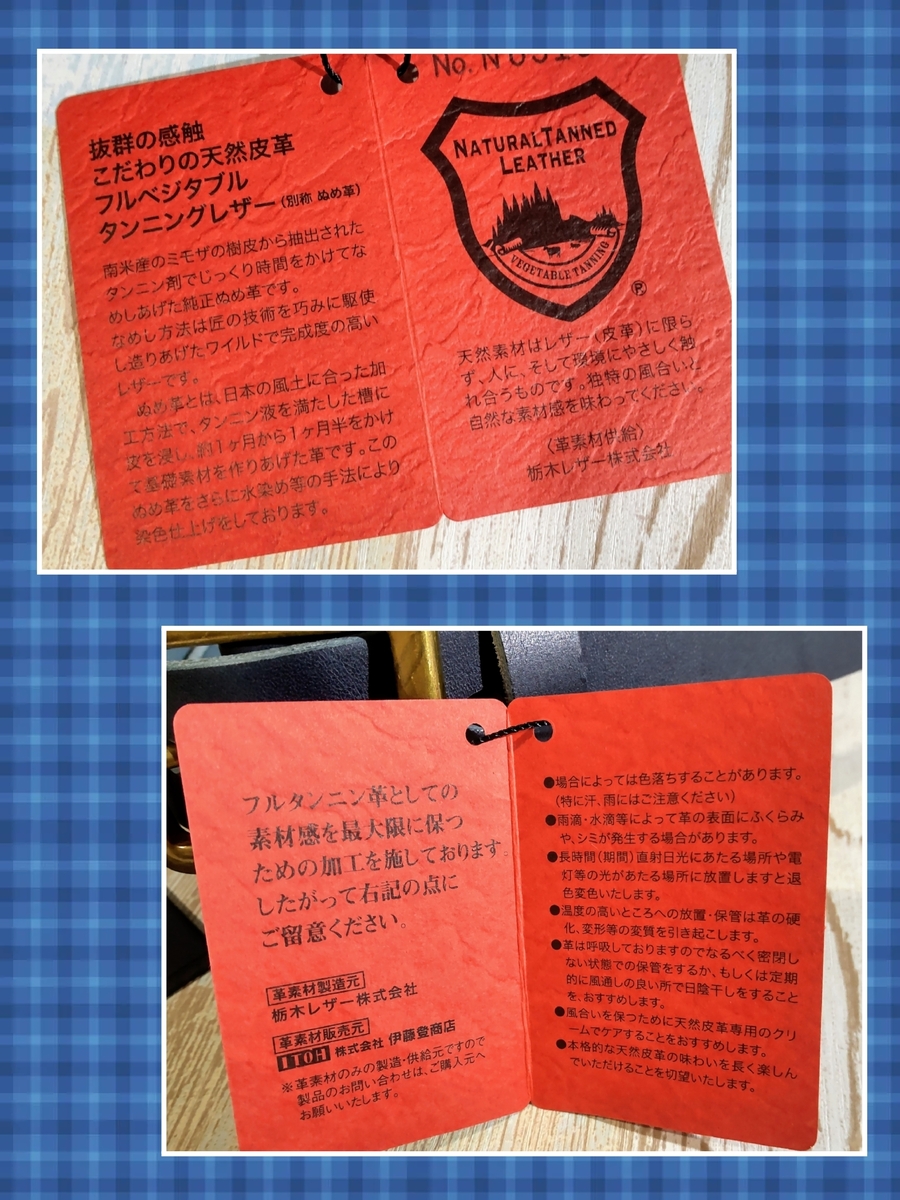 抜群の感触
こだわりの天然皮革
フルベジタブル
タンニングレザー(別称 ぬめ革)
南米産のミモザの樹皮から抽出された
タンニン剤でじっくり時間をかけてな
めしあげた純正ぬめ革です。
なめし方法は匠の技術を巧みに駆使
し造りあげたワイルドで完成度の高い
レザーです。
ぬめ革とは、日本の風土に合った加
工方法で、タンニン液を満たした槽に
皮を浸し、約1ヶ月から1ヶ月半をかけ
て基礎素材を作りあげた革です。この
ぬめ革をさらに水染め等の手法により
染色仕上げをしております。
No.
NATURAL TANNED
LEATHER
VEGETABLE TANNING
®
天然素材はレザー(皮革)に限ら
ず、人に、そして環境にやさしく触
れ合うものです。独特の風合いと
自然な素材感を味わってください。
〈革素材供給〉
栃木レザー株式会社
フルタンニン革としての
素材感を最大限に保つ
ための加工を施しております。
したがって右記の点に
ご留意ください。
革素材製造元
栃木レザー株式会社
革素材販売元
ITOH 株式会社 伊藤登商店
※革素材のみの製造・供給元ですので
製品のお問い合わせは、ご購入元へ
お願いいたします。
●場合によっては色落ちすることがあります。
(特に汗、雨にはご注意ください)
●雨滴・水滴等によって革の表面にふくらみ
や、シミが発生する場合があります。
●長時間(期間)直射日光にあたる場所や電
灯等の光があたる場所に放置しますと退
色変色いたします。
●温度の高いところへの放置・保管は革の硬
化、変形等の変質を引き起こします。
●革は呼吸しておりますのでなるべく密閉し
ない状態での保管をするか、もしくは定期
的に風通しの良い所で日陰干しをすること
を、おすすめします。
●風合いを保つために天然皮革専用のクリ
ームでケアすることをおすすめします。
●本格的な天然皮革の味わいを長く楽しん
でいただけることを切望いたします。